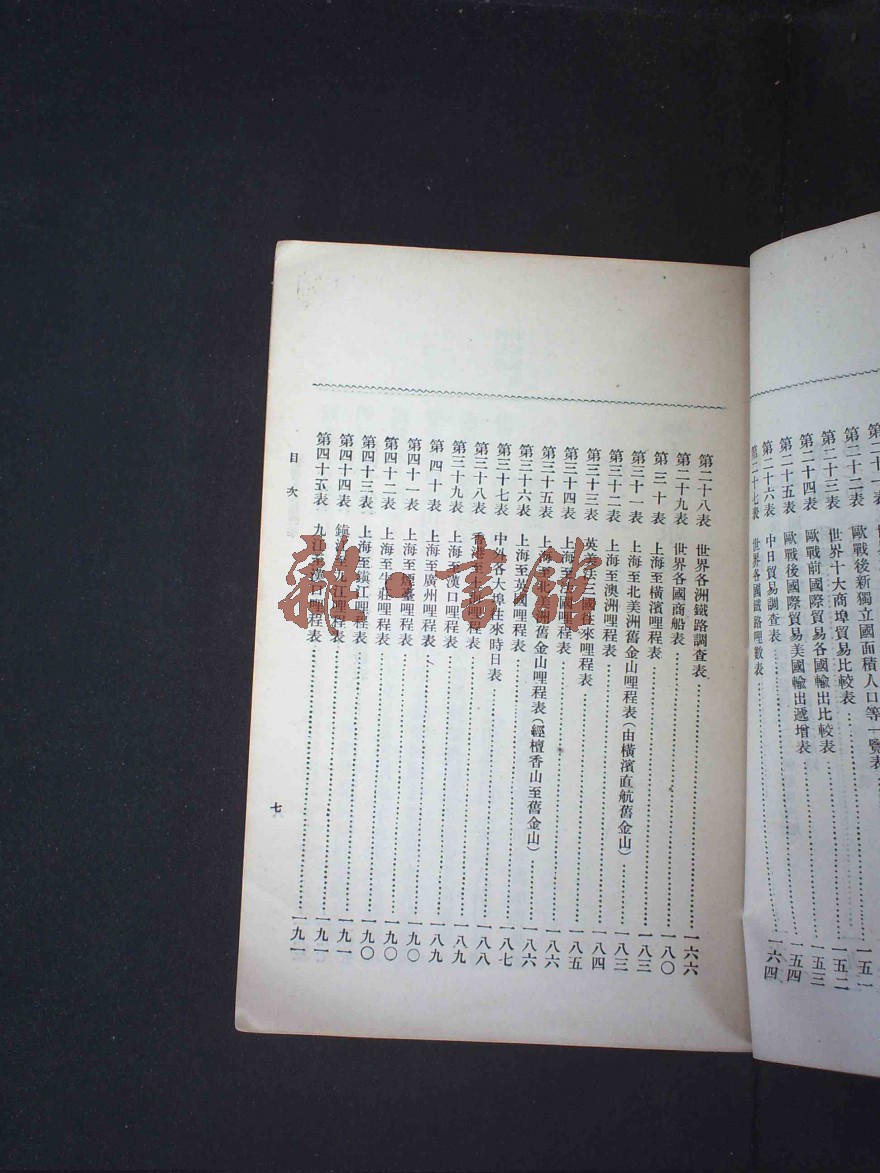 第二十一表
第二十二表 歐戰後新獨立國面積人口等一覽表
第二十三表 世界十大商埠貿易比較表……一五一
第二十四表 歐戰前國際貿易各國輸出比較表……一五二
第二十五表 歐戰後國際貿易美國輸出遞增表……一五三
第二十六表 中日貿易調查表……一五四
第二十七表 世界各國鐵路哩數表……一六四
第二十八表 世界各洲鐵路調查表……一六六
第二十九表 世界各國商船表……一八〇
第三十表 上海至橫濱哩程表……一八三
第三十一表 上海至北美洲舊金山哩程表(由橫濱直航舊金山)……一八三
第三十二表 上海至澳洲哩程表……一八四
第三十三表 英美法三國往來哩程表……一八五
第三十四表 上海至法國哩程表……一八六
第三十五表 上海至北美洲舊金山哩程表(經檀香山至舊金山)……一八六
第三十六表 上海至英國哩程表……一八七
第三十七表 中外各大埠往來時日表……一八八
第三十八表 香港至上北哩程表……一八九
第三十九表 上海至漢口哩程表……一八九
第四十表 上海至廣州哩程表……一九〇
第四十一表 上海至煙臺哩程表……一九〇
第四十二表 上海至牛莊哩程表……一九〇
第四十三表 上海至鎭江哩程表……一九一
第四十四表 鎭江至九江哩程表……一九一
第四十五表 九江至漢口哩程表……一九一
目次
七
雜·書館